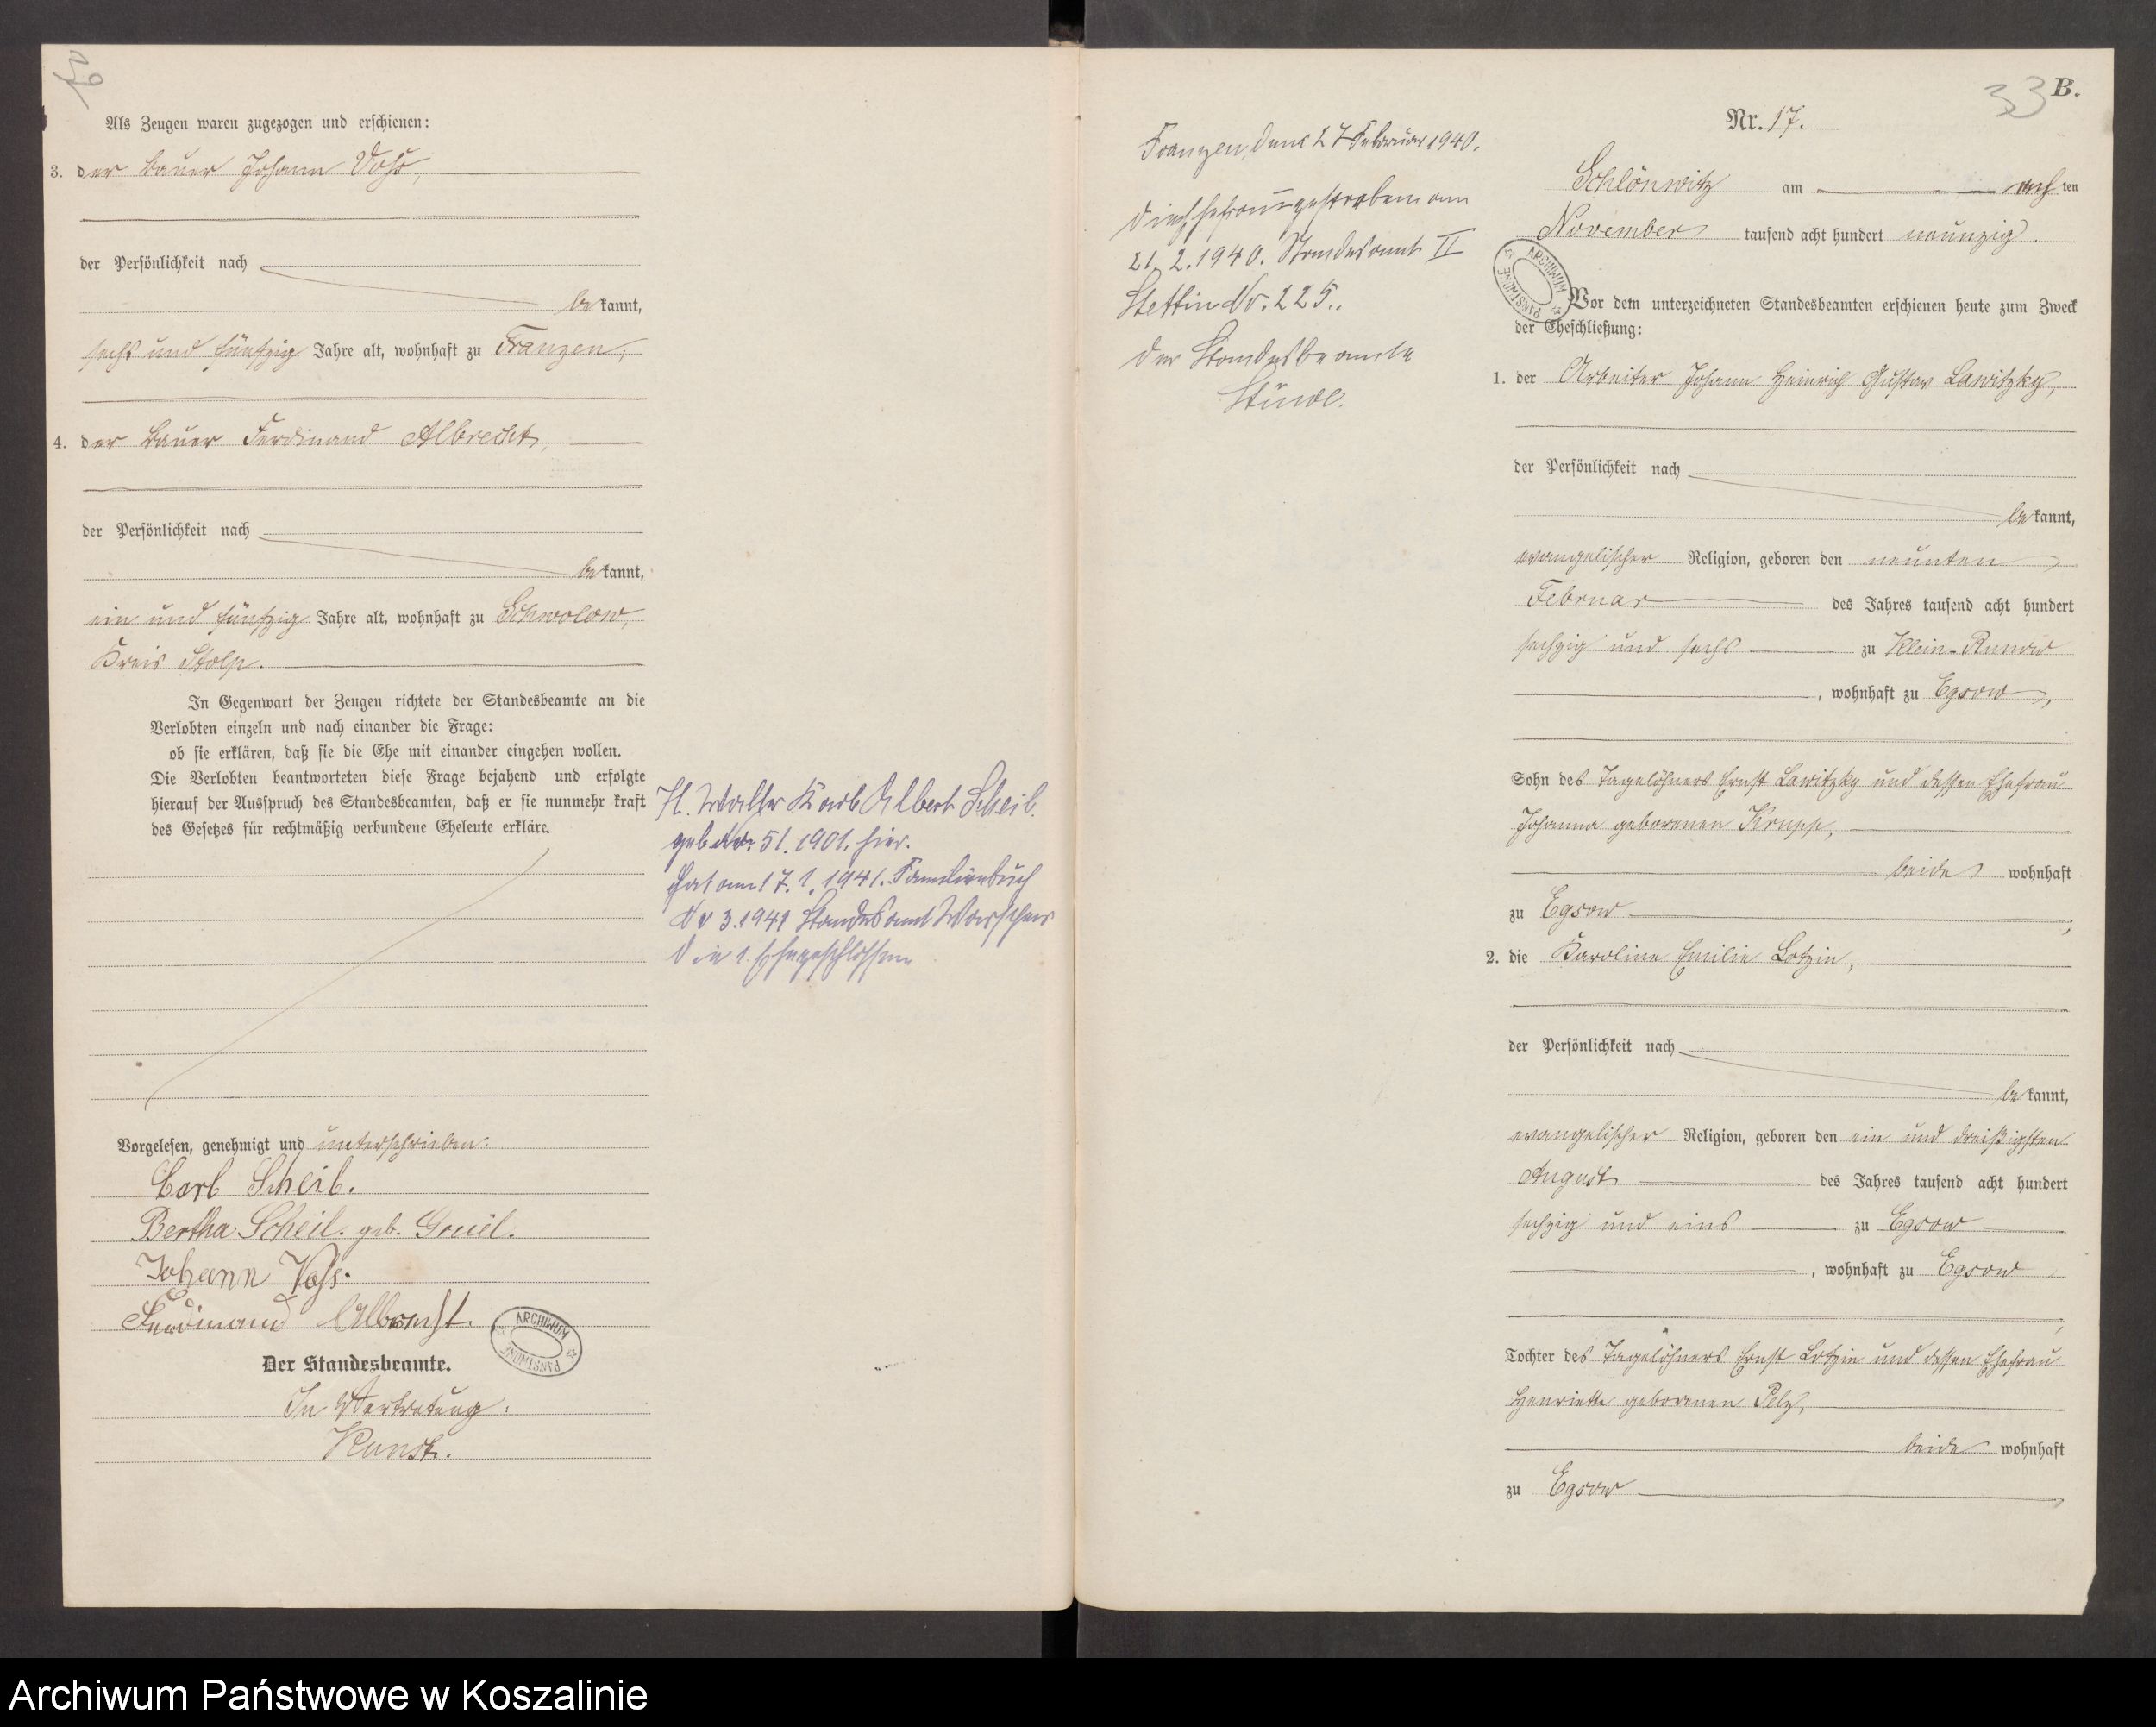 Als Zeugen waren zugezogen und erschienen:
3. der Bauer Johann Voß,
der Persönlichkeit nach
be kannt,
sechs und fünfzig Jahre alt, wohnhaft zu Franzen,
4. der Bauer Ferdinand Albrecht,
der Persönlichkeit nach
be kannt,
ein und fünfzig Jahre alt, wohnhaft zu Schwolow,
Kreis Stolp.
In Gegenwart der Zeugen richtete der Standesbeamte an die
Verlobten einzeln und nach einander die Frage:
ob sie erklären, daß sie die Ehe mit einander eingehen wollen.
Die Verlobten beantworteten diese Frage bejahend und erfolgte
hierauf der Ausspruch des Standesbeamten, daß er sie nunmehr kraft
des Gesetzes für rechtmäßig verbundene Eheleute erkläre.
Vorgelesen, genehmigt und unterschrieben.
Carl Scheil.
Bertha Scheil. geb. Gruel.
Johann Voss.
Ferdinand Albrecht
ARCHIWUM PAŃSTWOWE
Der Standesbeamte.
In Vertretung:
Kunst.
Walter Karl Albert Scheil.
geb. Nr. 51. 1901. hier.
Hat am 17.1.1941. Familienbuch
Nr 3.1941 Standesamt
die 1. Ehe geschlossen
Franzen, den 27 Februar 1940.
Die Ehefrau gestorben am
21.2.1940. Standesamt II
Stettin Nr. 225.
Der Standesbeamte
33 B.
Nr. 17.
Schlönwitz am ten
November tausend acht hundert neunzig.
ARCHIWUM PAŃSTWOWE
Vor dem unterzeichneten Standesbeamten erschienen heute zum Zweck
der Eheschließung:
1. der Arbeiter Johann Heinrich Gustav Lawitzky,
der Persönlichkeit nach
be kannt,
evangelischer Religion, geboren den neunten
Februar des Jahres tausend acht hundert
sechzig und sechs zu Klein-Runow
, wohnhaft zu Egsow,
Sohn des Tagelöhners Ernst Lawitzky und dessen Ehefrau
Johanna geborenen Krupp,
beide wohnhaft
zu Egsow,
2. die Karoline Emilie Lotzin,
der Persönlichkeit nach
be kannt,
evangelischer Religion, geboren den ein und dreißigsten
August des Jahres tausend acht hundert
sechzig und eins zu Egsow
, wohnhaft zu Egsow
Tochter des Tagelöhners Ernst Lotzin und dessen Ehefrau
Henriette geborenen Pelz,
beide wohnhaft
zu Egsow,
Archiwum Państwowe w Koszalinie